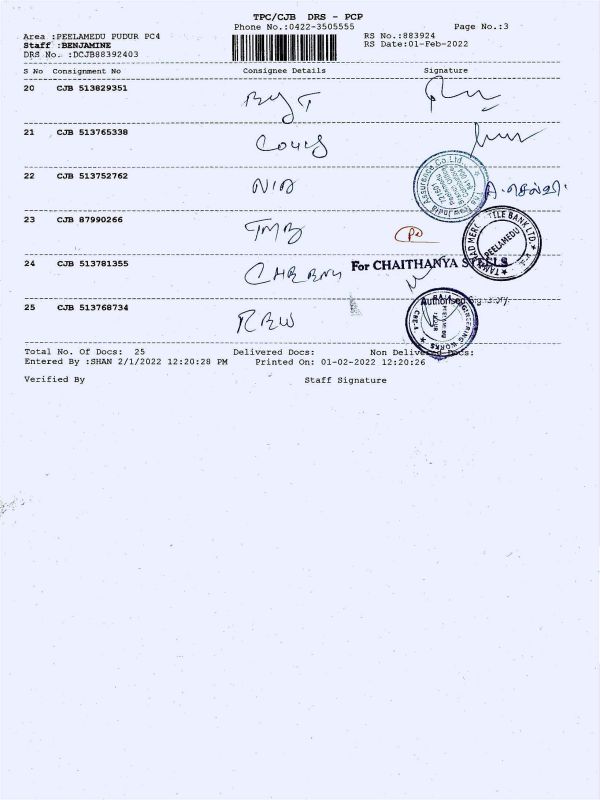 TPC/CJB DRS - PCP
Phone No.:0422-3505555 Page No.:3
Area :PEELAMEDU PUDUR PC4 RS No.:883924
Staff :BENJAMINE RS Date:01-Feb-2022
DRS No. :DCJB88392403
S No Consignment No Consignee Details Signature
20 CJB 513829351
21 CJB 513765338
22 CJB 513752762 NIA
23 CJB 87990266 TMB
24 CJB 513781355
For CHAITHANYA STEELS
Authorised Signatory
25 CJB 513768734 REW
Total No. Of Docs: 25 Delivered Docs: Non Delivered Docs:
Entered By :SHAN 2/1/2022 12:20:28 PM Printed On: 01-02-2022 12:20:26
Verified By Staff Signature